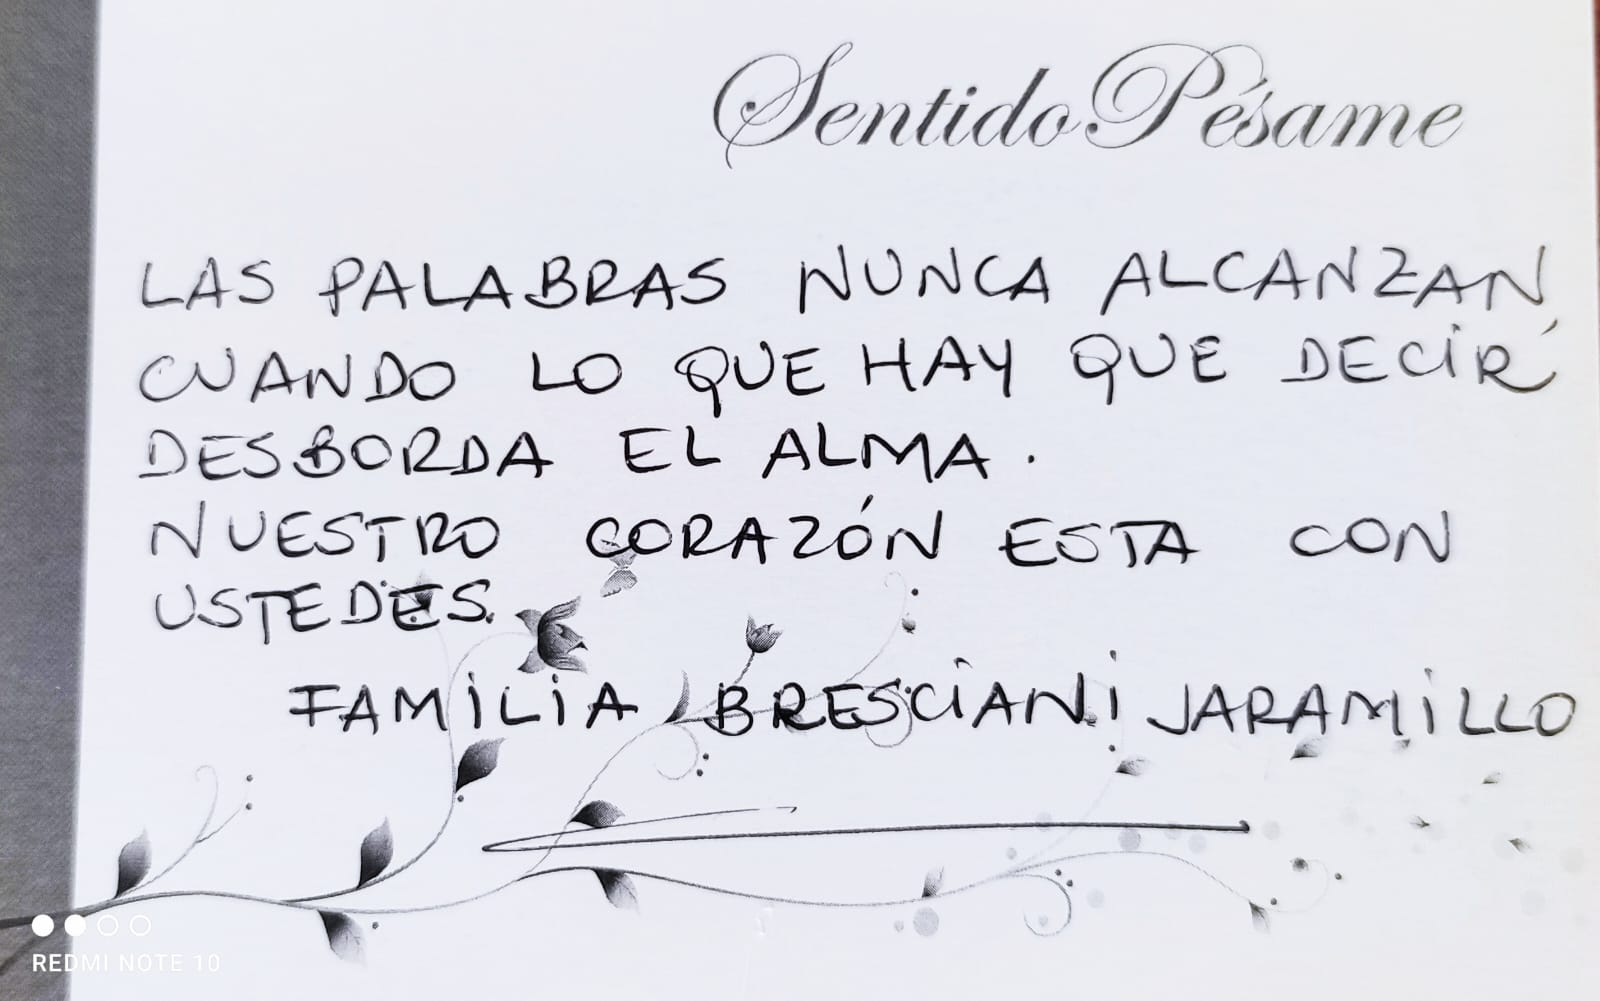 Sentido Pésame
LAS PALABRAS NUNCA ALCANZAN
CUANDO LO QUE HAY QUE DECIR
DESBORDA EL ALMA.
NUESTRO CORAZÓN ESTA CON
USTEDES.
FAMILIA BRESCIANI JARAMILLO
REDMI NOTE 10